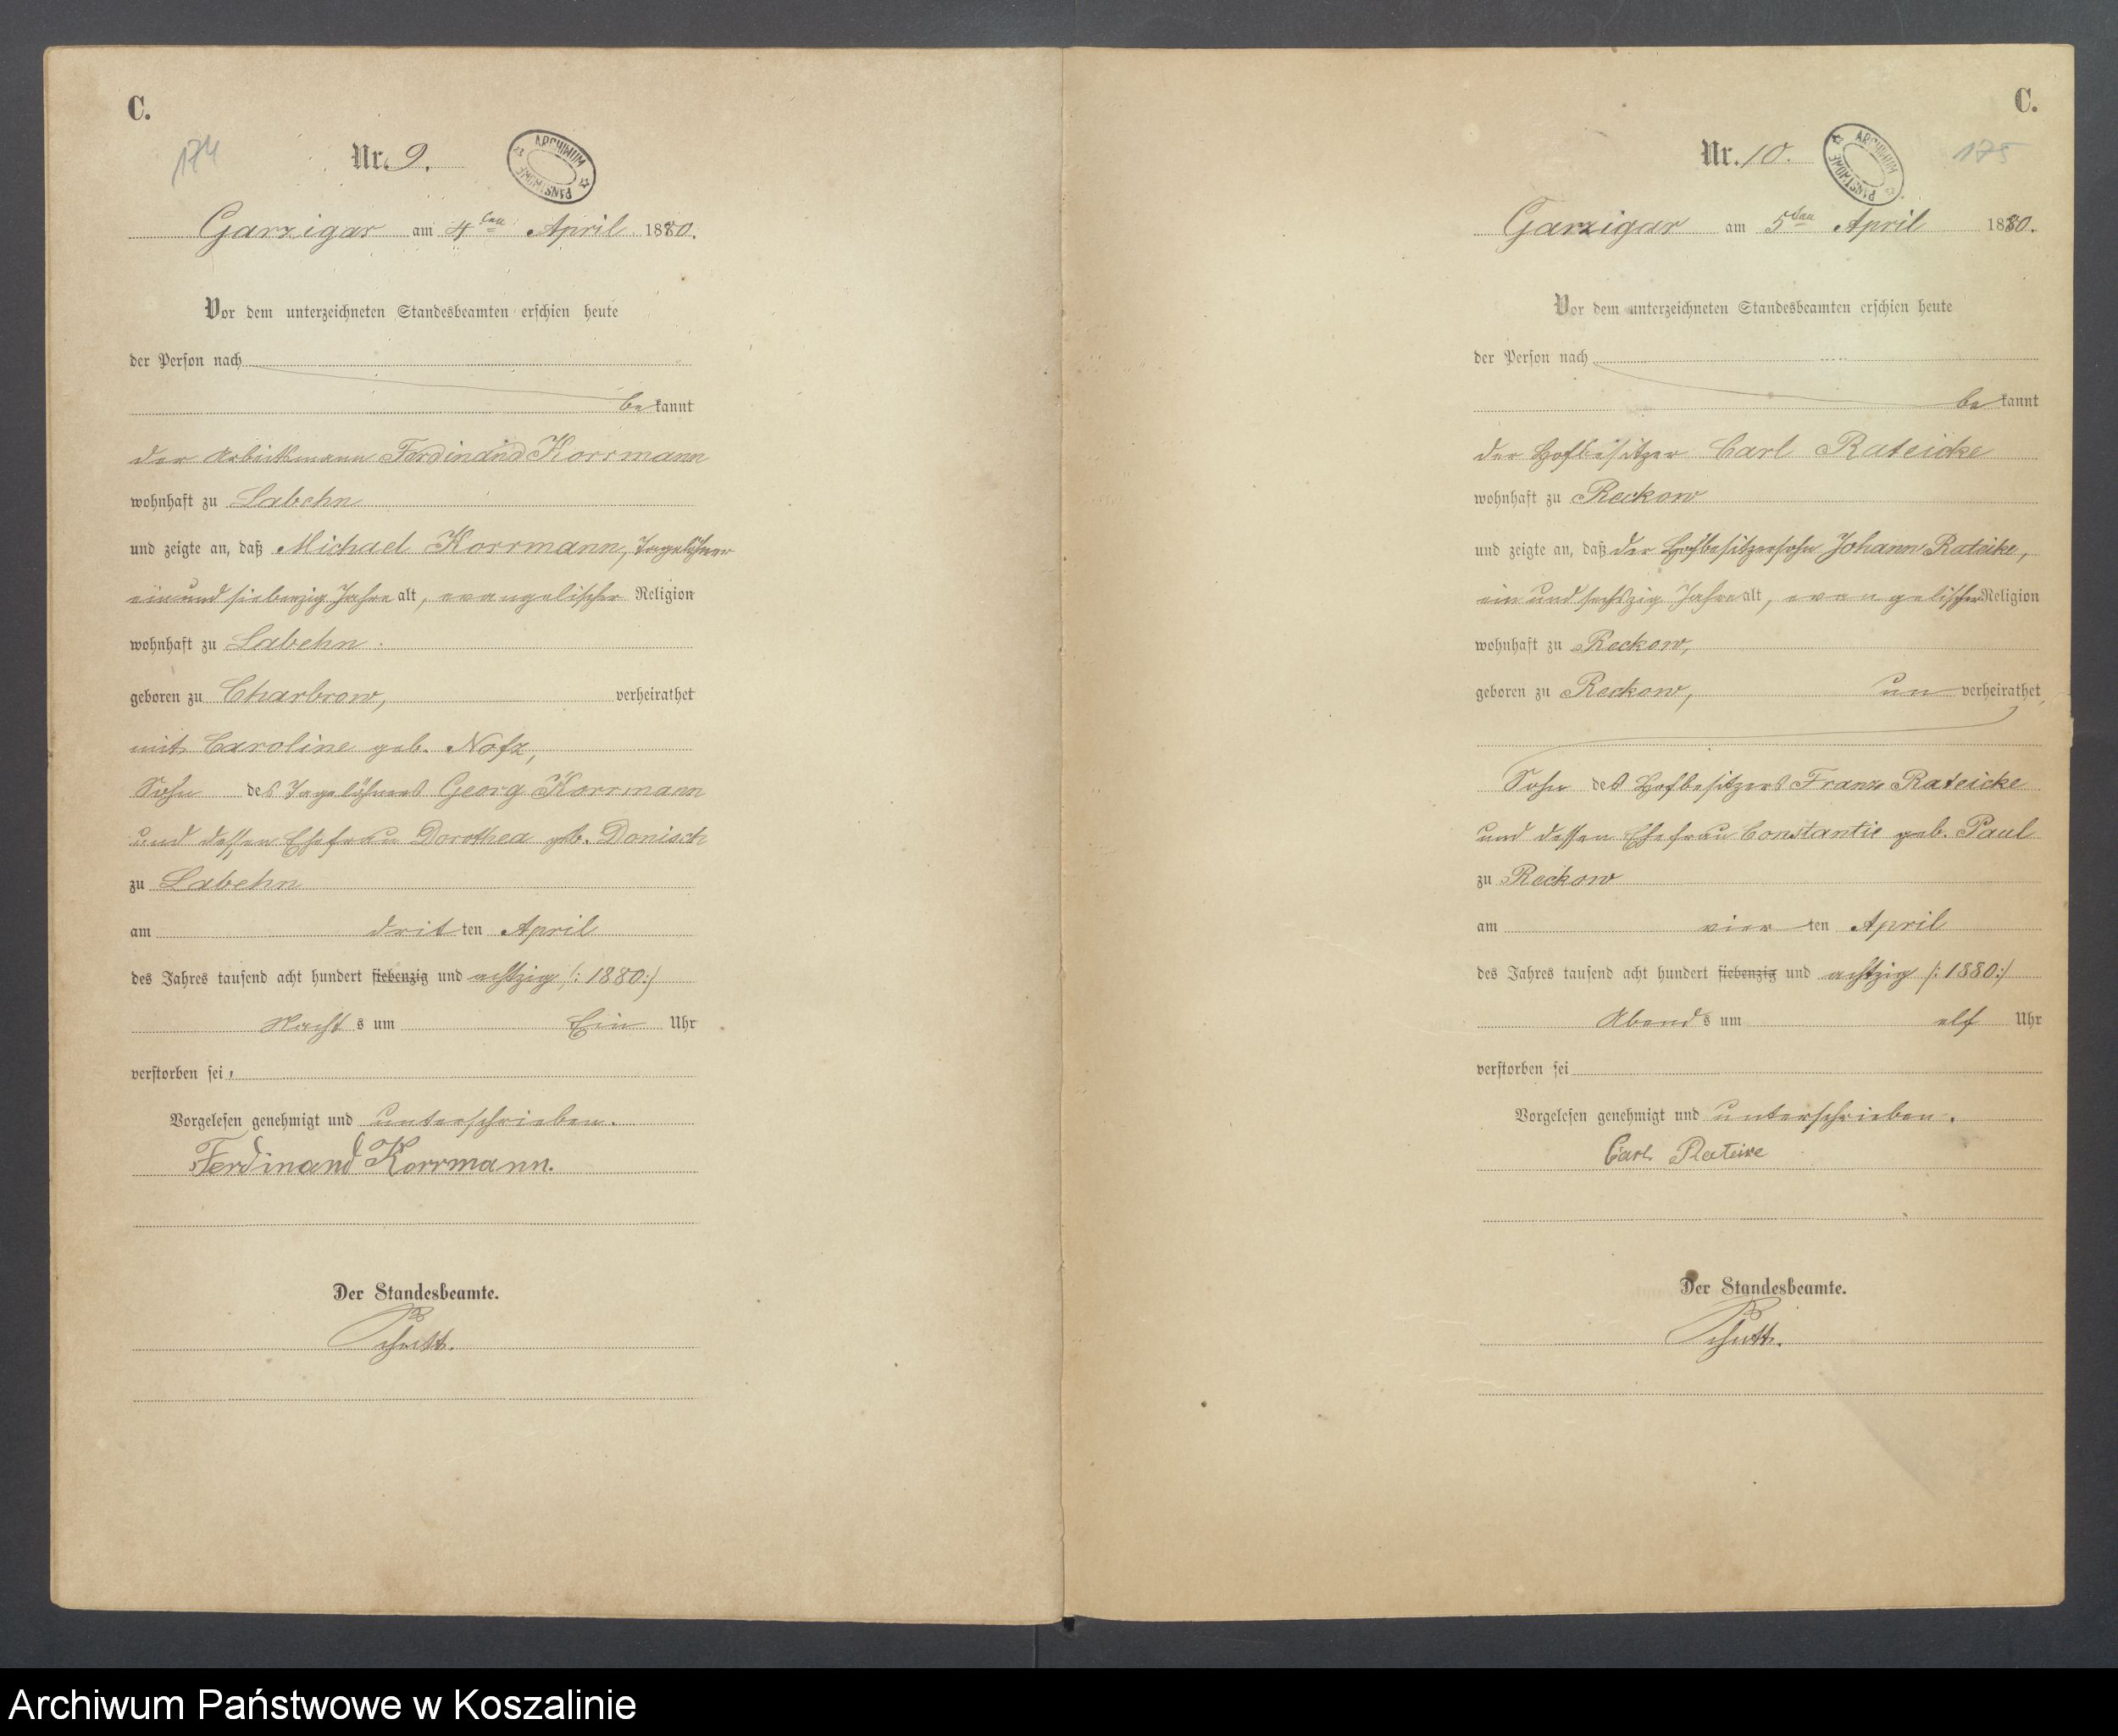 C.
174
Nr. 9.
ARCHIWUM PAŃSTWOWE
Garzigar am 4ten April 1880.
Vor dem unterzeichneten Standesbeamten erschien heute
der Person nach
bekannt
der Arbeitsmann Ferdinand Korrmann
wohnhaft zu Labehn
und zeigte an, daß Michael Korrmann, Tagelöhner
einund siebenzig Jahre alt, evangelischer Religion
wohnhaft zu Labehn
geboren zu Charbrow, verheirathet
mit Caroline geb. Nofz,
Sohn des Tagelöhners Georg Korrmann
und dessen Ehefrau Dorothea geb. Donisch
zu Labehn
am dritten April
des Jahres tausend acht hundert siebenzig und achtzig /: 1880 :/
Nachts um Ein Uhr
verstorben sei,
Vorgelesen genehmigt und unterschrieben.
Ferdinand Korrmann.
Der Standesbeamte.
Schutt.
C.
175
Nr. 10.
ARCHIWUM PAŃSTWOWE
Garzigar am 5ten April 1880.
Vor dem unterzeichneten Standesbeamten erschien heute
der Person nach
bekannt
der Hofbesitzer Carl Rateicke
wohnhaft zu Reckow
und zeigte an, daß der Hofbesitzersohn Johann Rateike,
ein und sechszig Jahre alt, evangelischer Religion
wohnhaft zu Reckow,
geboren zu Reckow, unverheirathet,
Sohn des Hofbesitzers Franz Rateicke
und dessen Ehefrau Constantie geb. Paul
zu Reckow
am vierten April
des Jahres tausend acht hundert siebenzig und achtzig /: 1880 :/
Abends um elf Uhr
verstorben sei
Vorgelesen genehmigt und unterschrieben.
Carl Rateike
Der Standesbeamte.
Schutt.
Archiwum Państwowe w Koszalinie